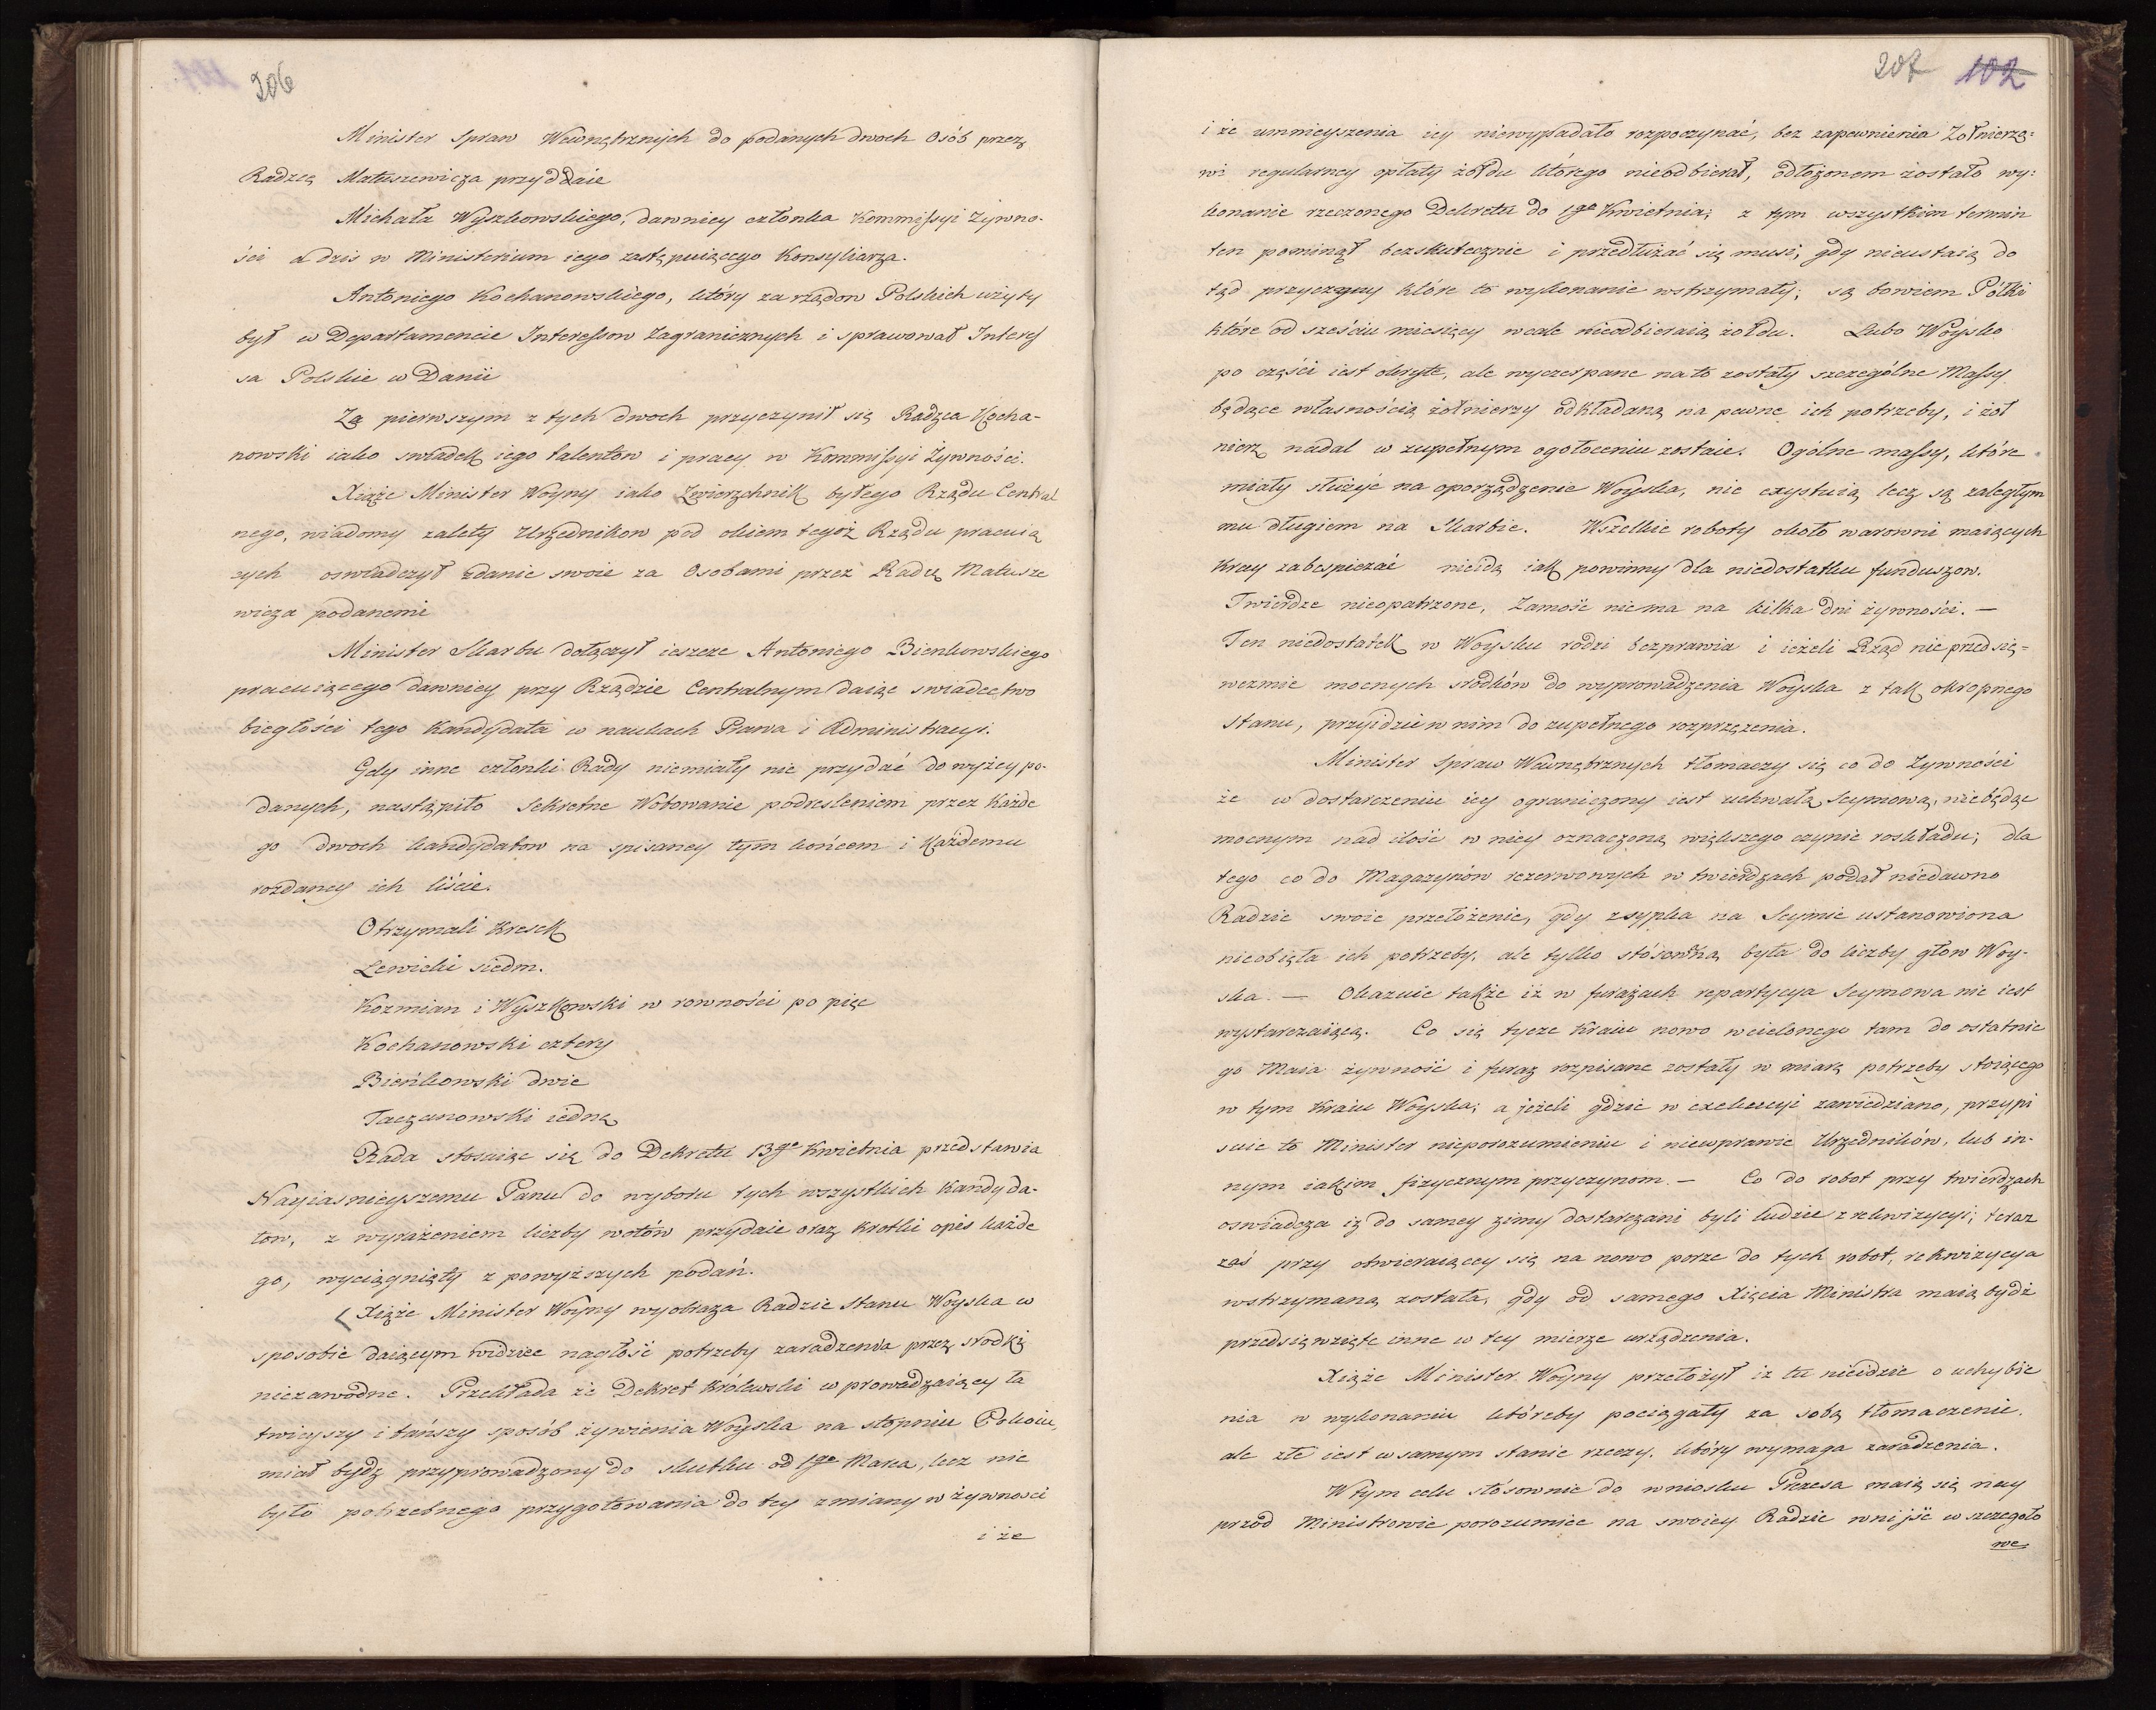 206
Minister Spraw Wewnętrznych do podanych dwoch Osób przez
Radzcę Matuszewicza przyddaie
Michała Wyszkowskiego, dawniey członka Kommissyi Żywno-
ści a dziś w Ministerium iego zastępuiącego Konsyliarza.
Antoniego Kochanowskiego, który za rządow Polskich użyty
był w Departamencie Interessow Zagranicznych i sprawował Interes
sa Polskie w Danii
Za pierwszym z tych dwoch przyczynił się Radzca Kocha-
nowski iako swiadek iego talentow i pracy w Kommissyi Żywności.
Xiąże Minister Woyny iako Zwierzchnik byłego Rządu Central
nego, wiadomy zalety Urzędnikow pod okiem tegoż Rządu pracuią
cych oswiadczył zdanie swoie za Osobami przez Radcę Matusze
wicza podanemi
Minister Skarbu dołączył ieszcze Antoniego Bienkowskiego
pracuiącego dawniey przy Rządzie Centralnym daiąc swiadectwo
biegłości tego Kandydata w naukach Prawa i Administracyi.
Gdy inne członki Rady niemiały nic przydać do wyżey po-
danych, nastąpiło Sekretne Wotowanie podresleniem przez Każde
go dwoch kandydatow na spisaney tym końcem i Każdemu
rozdaney ich liście.
Otrzymali Kresek
Lewicki siedm.
Kozmian i Wyszkowski w rowności po pięć
Kochanowski cztery
Bieńkowski dwie
Taczanowski iedną
Rada stosuiąc się do Dekretu 13go Kwietnia przedstawia
Nayiasnieyszemu Panu do wyboru tych wszystkich Kandyda-
tow, z wyrażeniem liczby wotów przydaie oraz krotki opis każde
go, wyciągnięty z powyższych podań.
Xiąże Minister Woyny wyobraża Radzie Stanu Woyska w
sposobie daiącym widziec nagłość potrzeby zaradzenia przez srodki
niezawodne. Przekłada że Dekret Królewski wprowadzaiący ła
twieyszy i tańszy sposób żywienia Woyska na stopniu Pokoiu,
miał bydź przyprowadzony do skutku od 1go Marca, lecz nie
było potrzebnego przygotowania do tey zmiany w żywnosci
i że
207 102
i że umnieyszenia iey niewypadało rozpoczynać, bez zapewnienia Żołnierzo=
wi regularney opłaty żołdu którego nieodbierał, odłożonem zostało wy:
konanie rzeczonego Dekretu do 1go Kwietnia; z tym wszystkim termin
ten pominął bezskutecznie i przedłużać się musi, gdy nieustaią do
tąd przyczyny które to wykonanie wstrzymały; są bowiem Półki
które od sześciu miesięcy wcale nieodbieraią żołdu. Lubo Woysko
po części iest okryte, ale wyczerpane na to zostały szczególne Massy
będące własnością żołnierzy odkładaną na pewne ich potrzeby, i żoł
nierz nadal w zupełnym ogołoceniu zostaie. Ogólne massy, które
miały służyć na oporządzenie Woyska, nie exystuią lecz są zaległym
mu długiem na Skarbie. Wszelkie roboty około warowni maiących
Kray zabespieczać nieidą iak powinny dla niedostatku funduszow.
Twierdze nieopatrzone, Zamość niema na kilka dni żywności. —
Ten niedostatek w Woysku rodzi bezprawia i ieżeli Rząd nie przedsię=
wezmie mocnych srodków do wyprowadzenia Woyska z tak okropnego
stanu, przyidzie w nim do zupełnego rozprzężenia.
Minister Spraw Wewnętrznych tłomaczy się co do Żywności
że w dostarczeniu iey ograniczony iest uchwałą Seymową, niebędąc
mocnym nad ilość w niey oznaczoną większego czynić rozkładu; dla
tego co do Magazynów rezerwowych w twierdzach podał niedawno
Radzie swoie przełożenie, gdy zsypka na Seymie ustanowiona
nieobięła ich potrzeby, ale tylko stósowną była do liczby głow Woy-
ska. — Okazuie także iż w furażach repartycya Seymowa nie iest
wystarczaiącą. Co się tycze Kraiu nowo wcielonego tam do ostatnie
go Maia żywność i furaż rozpisane zostały w miarę potrzeby stoiącego
w tym Kraiu Woyska; a jeżeli gdzie w exekucyi zawiedziano, przypi
suie to Minister nieporozumieniu i niewprawie Urzędników, lub in-
nym iakim fizycznym przyczynom. — Co do robot przy twierdzach
oswiadcza iż do samey zimy dostarczani byli ludzie z rekwizycyi; teraz
zaś przy otwieraiącey się na nowo porze do tych robot, rekwizycya
wstrzymaną została, gdy od samego Xięcia Ministra maią bydź
przedsięwzięte inne w tey mierze urządzenia.
Xiąże Minister Woyny przełożył iż tu nieidzie o uchybie
nia w wykonaniu któreby pociągały za sobą tłomaczenie,
ale złe iest w samym stanie rzeczy, który wymaga zaradzenia.
W tym celu stósownie do wniosku Prezesa maią się nay
przod Ministrowie porozumiec na swoiey Radzie wnijść w szczegóło
we